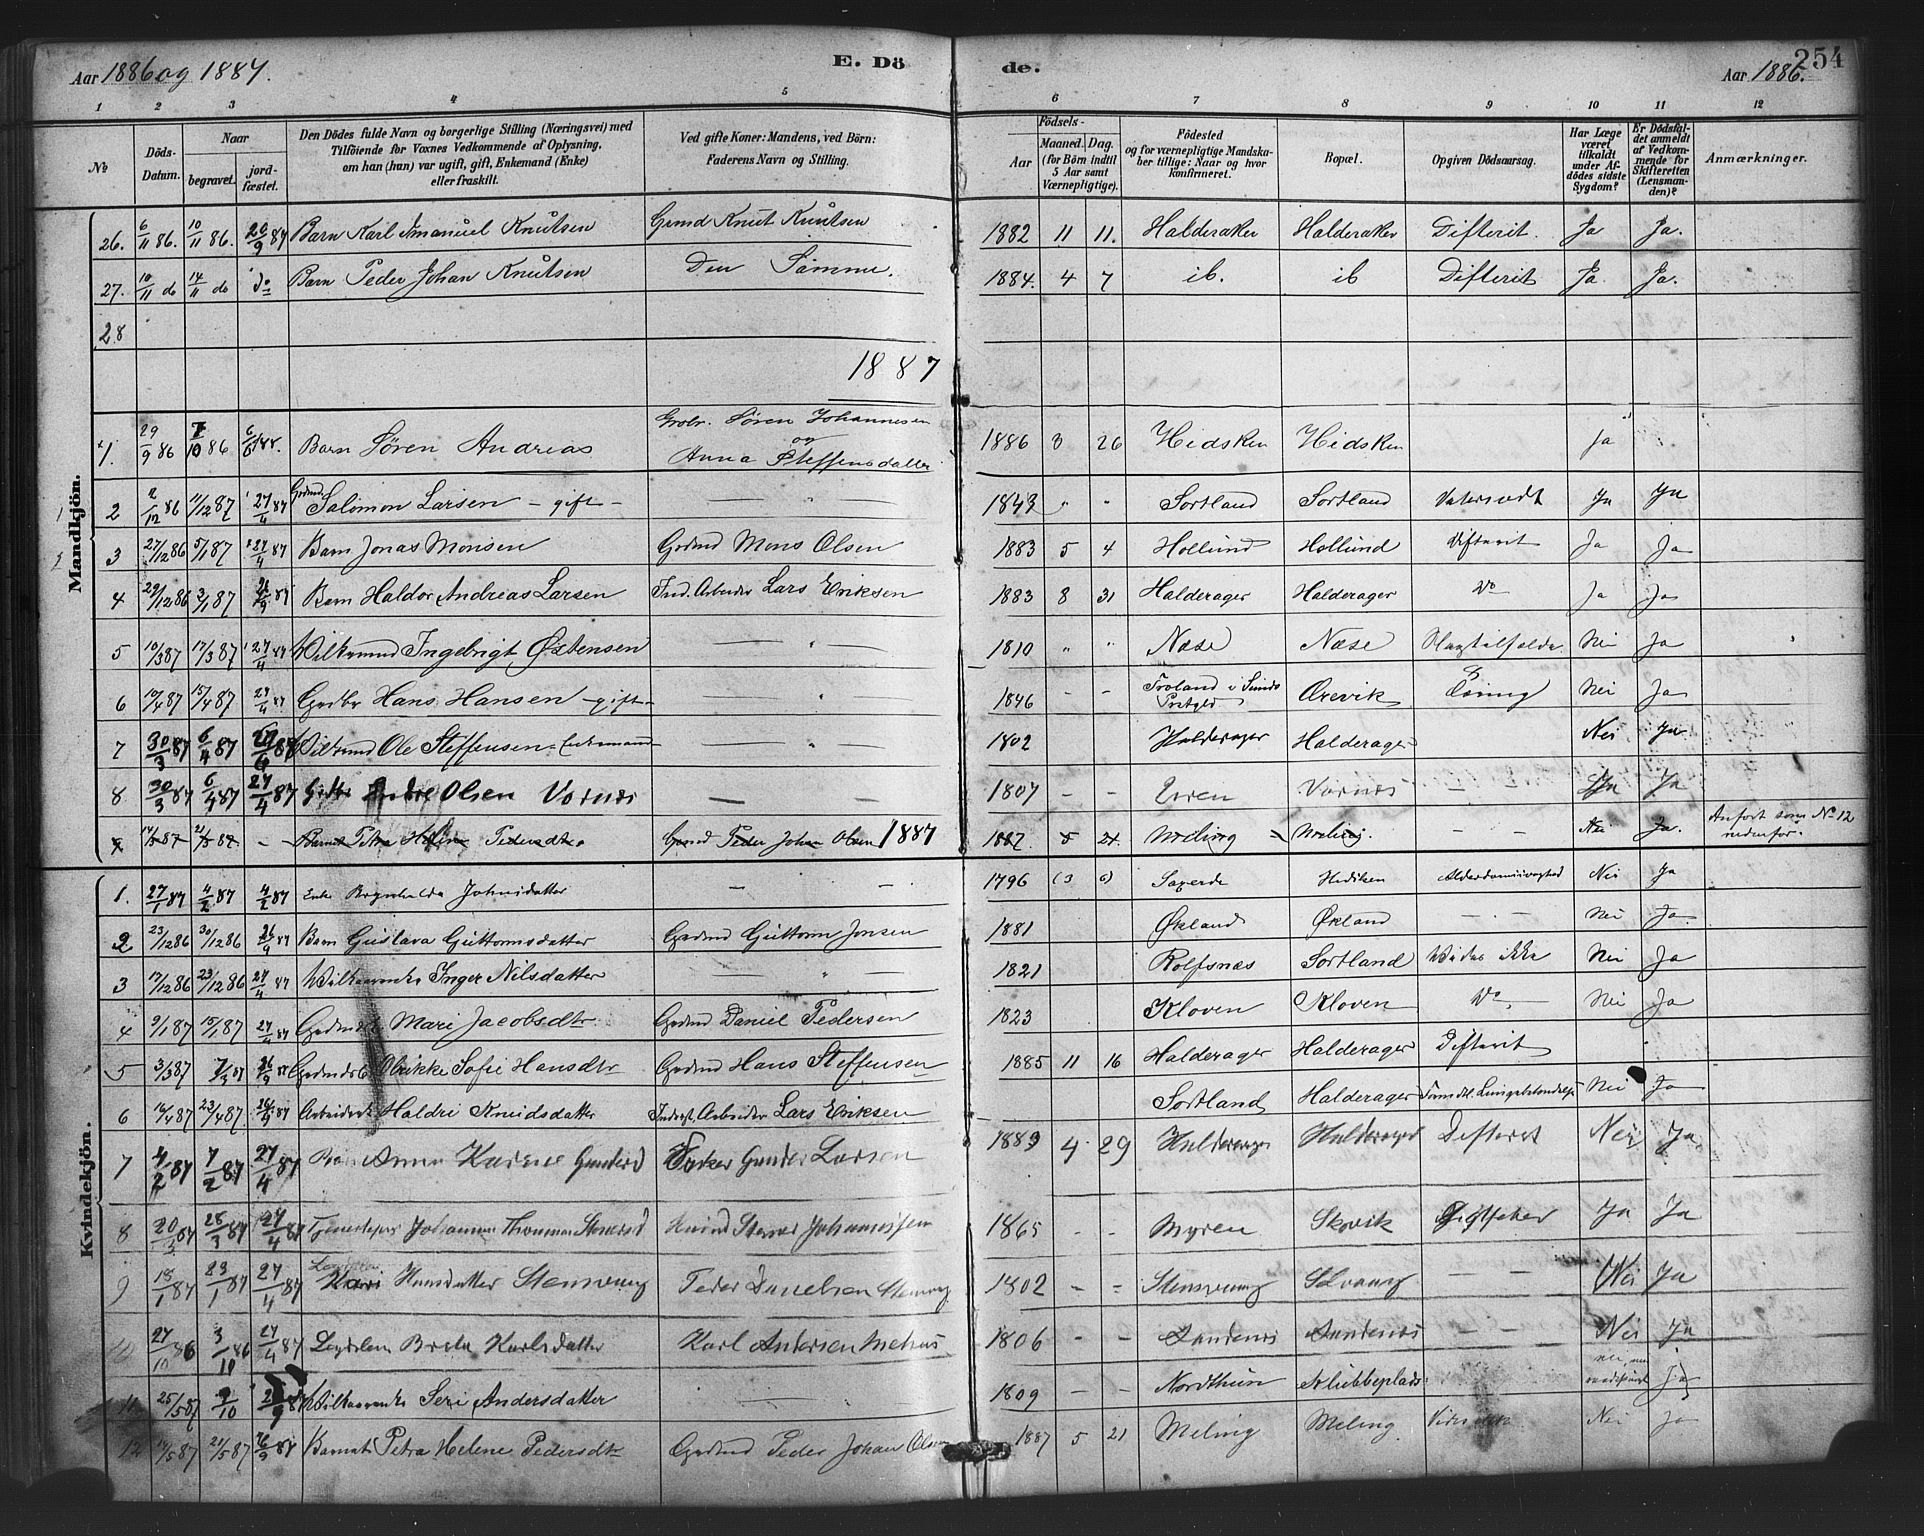 Aar 1886 og 1887.
E. Dö
de.
Aar 1886.
254
1 2 3 4 5 6 7 8 9 10 11 12
No
Döds-Datum.
Naar
begravet.
jord-fæstet.
Den Dödes fulde Navn og borgerlige Stilling (Næringsvei) med
Tilföiende for Voxnes Vedkommende af Oplysning,
om han (hun) var ugift, gift, Enkemand (Enke)
eller fraskilt.
Ved gifte Koner: Mandens, ved Börn:
Faderens Navn og Stilling.
Födsels-
Aar
Maaned. Dag.
(for Börn indtil
5 Aar samt
Værnepligtige).
Födested
og for værnepligtige Mandska-
ber tillige: Naar og hvor
konfirmeret.
Bopæl.
Opgiven Dödsaarsag.
Har Læge
været
tilkaldt
under Af-
dödes sidste
Sygdom?
Er Dödsfal-
det anmeldt
af Vedkom-
mende for
Skifteretten
(Lensman-
den)?
Anmærkninger.
Mandkjön.
26. 6/11 86. 10/11 86. 20/9 87 Barn Karl Imanuel Knutsen Grmd Knut Knutsen 1882 11 11. Halderaker Halderaker Difterit. Ja Ja.
27. 10/11 do 14/11 do do Barn Peder Johan Knutsen Den Samme. 1884. 4 7 ib. ib Difterit Ja. Ja.
28
1887
1. 29/9 86 7/10 86 Barn Søren Andreas Søren Johannesen og Anna Steffensdatter 1886 8 26 Hidsken Hidsken Ja
2 12 86 11/12 87 27/4 87 Grdmd Salomon Larsen - gift - 1843 Sortland Sortland Ja Ja
3 27/12 86 5/1 87 27/4 87 Barn Jonas Monsen Grdmd Mons Olsen 1883 5 4 Hollund Hollund Difterit Ja Ja
4 29/12 86 3/1 87 26/9 87 Barn Haldor Andreas Larsen Ind. Arbeider Lars Eriksen 1883 8 31 Halderager Halderager Do Ja Ja
5 10/3 87 17/3 87 27/4 87 Vilkrmnd Ingebrigt Østensen 1810 Næse Næse Nei Ja
6 10/4 87 15/4 87 27/4 87 Grdbr Hans Hansen - gift - 1846 - - Froland i Prstgld Ørevik Nei Ja
7 30/3 87 6/4 87 27/6 87 Vilkrmd Ole Steffensen - Enkemand 1802 Halderager Halderager Nei Ja
8. 30/3 87 6/4 87 27/4 87 Olsen Vornæs 1807 - - Vornæs Ja Ja
14/5 87 21/5 87 - Barnet Petra Helene Pedersdtr. Grmd Peder Johan Olsen 1887 1887. 5 21 Meling Meling. - - Nei Ja. Anført som No 12 nedenfor.
Kvindekjön.
1. 27/1 87 4/2 87 4/2 87 Enke Brynhilda Johnsdatter - - 1796 Hidsken Alderdomssvaghed Nei Ja
2 23/12 86 30/12 86 26/9 87 Barn Gustava Guttormsdatter Grdmd Guttorm Jonsen 1881 Økland Økland - - Nei Ja
3 17/12 86 23/12 86 27/4 87 Inger Nilsdatter 1821 Rolfsnæs Sortland Vides ikke Nei Ja
4 9/1 87 15/1 87 27/4 87 Mari Jacobsdtr Grdmd Daniel Pedersen 1823 Kloven Kloven Do Nei Ja
5 3/3 87 7/3 87 26/9 87 Olrikke Sofie Hansdtr Grdmd Hans Steffensen 1885 11 16 Halderager Halderager Difterit
6 16/4 87 23/4 87. 26/9 87 Haldri Knudsdatter Indrst. Arbeider Lars Eriksen Sortland Halderager Nei Ja
7 4/2 87 7/2 87 27/4 87 Anna Karine Gundersd Gunder Larsen 1883 4 29 Halderager Halderager Difterit Nei Ja
8 20/3 87 25/3 87 27/4 87 Johanna Johannessen 1865 - - Myren Skovik Ja Ja
9 18/1 87 23/1 87 27/4 87 Kari Hansdatter Stensvang Peder Danielsen 1802 - - Stensvang - - Nei Ja
10 27/10 86 3/10 86 27/4 87 Brita Karlsdatter Karl Andersen Mehus 1806 - - Sandenæs Sandenæs - - Nei Ja
11 25/5 87 9/10 Seri Andersdatter 1809 - - Nordthun Klubbeplads Ja
12 14/5 87 21/5 87 26/9 87 Barnet Petra Helene Pedersdtr Grdmd Peder Johan Olsen 1887 5 21 Meling Meling. Nei Ja